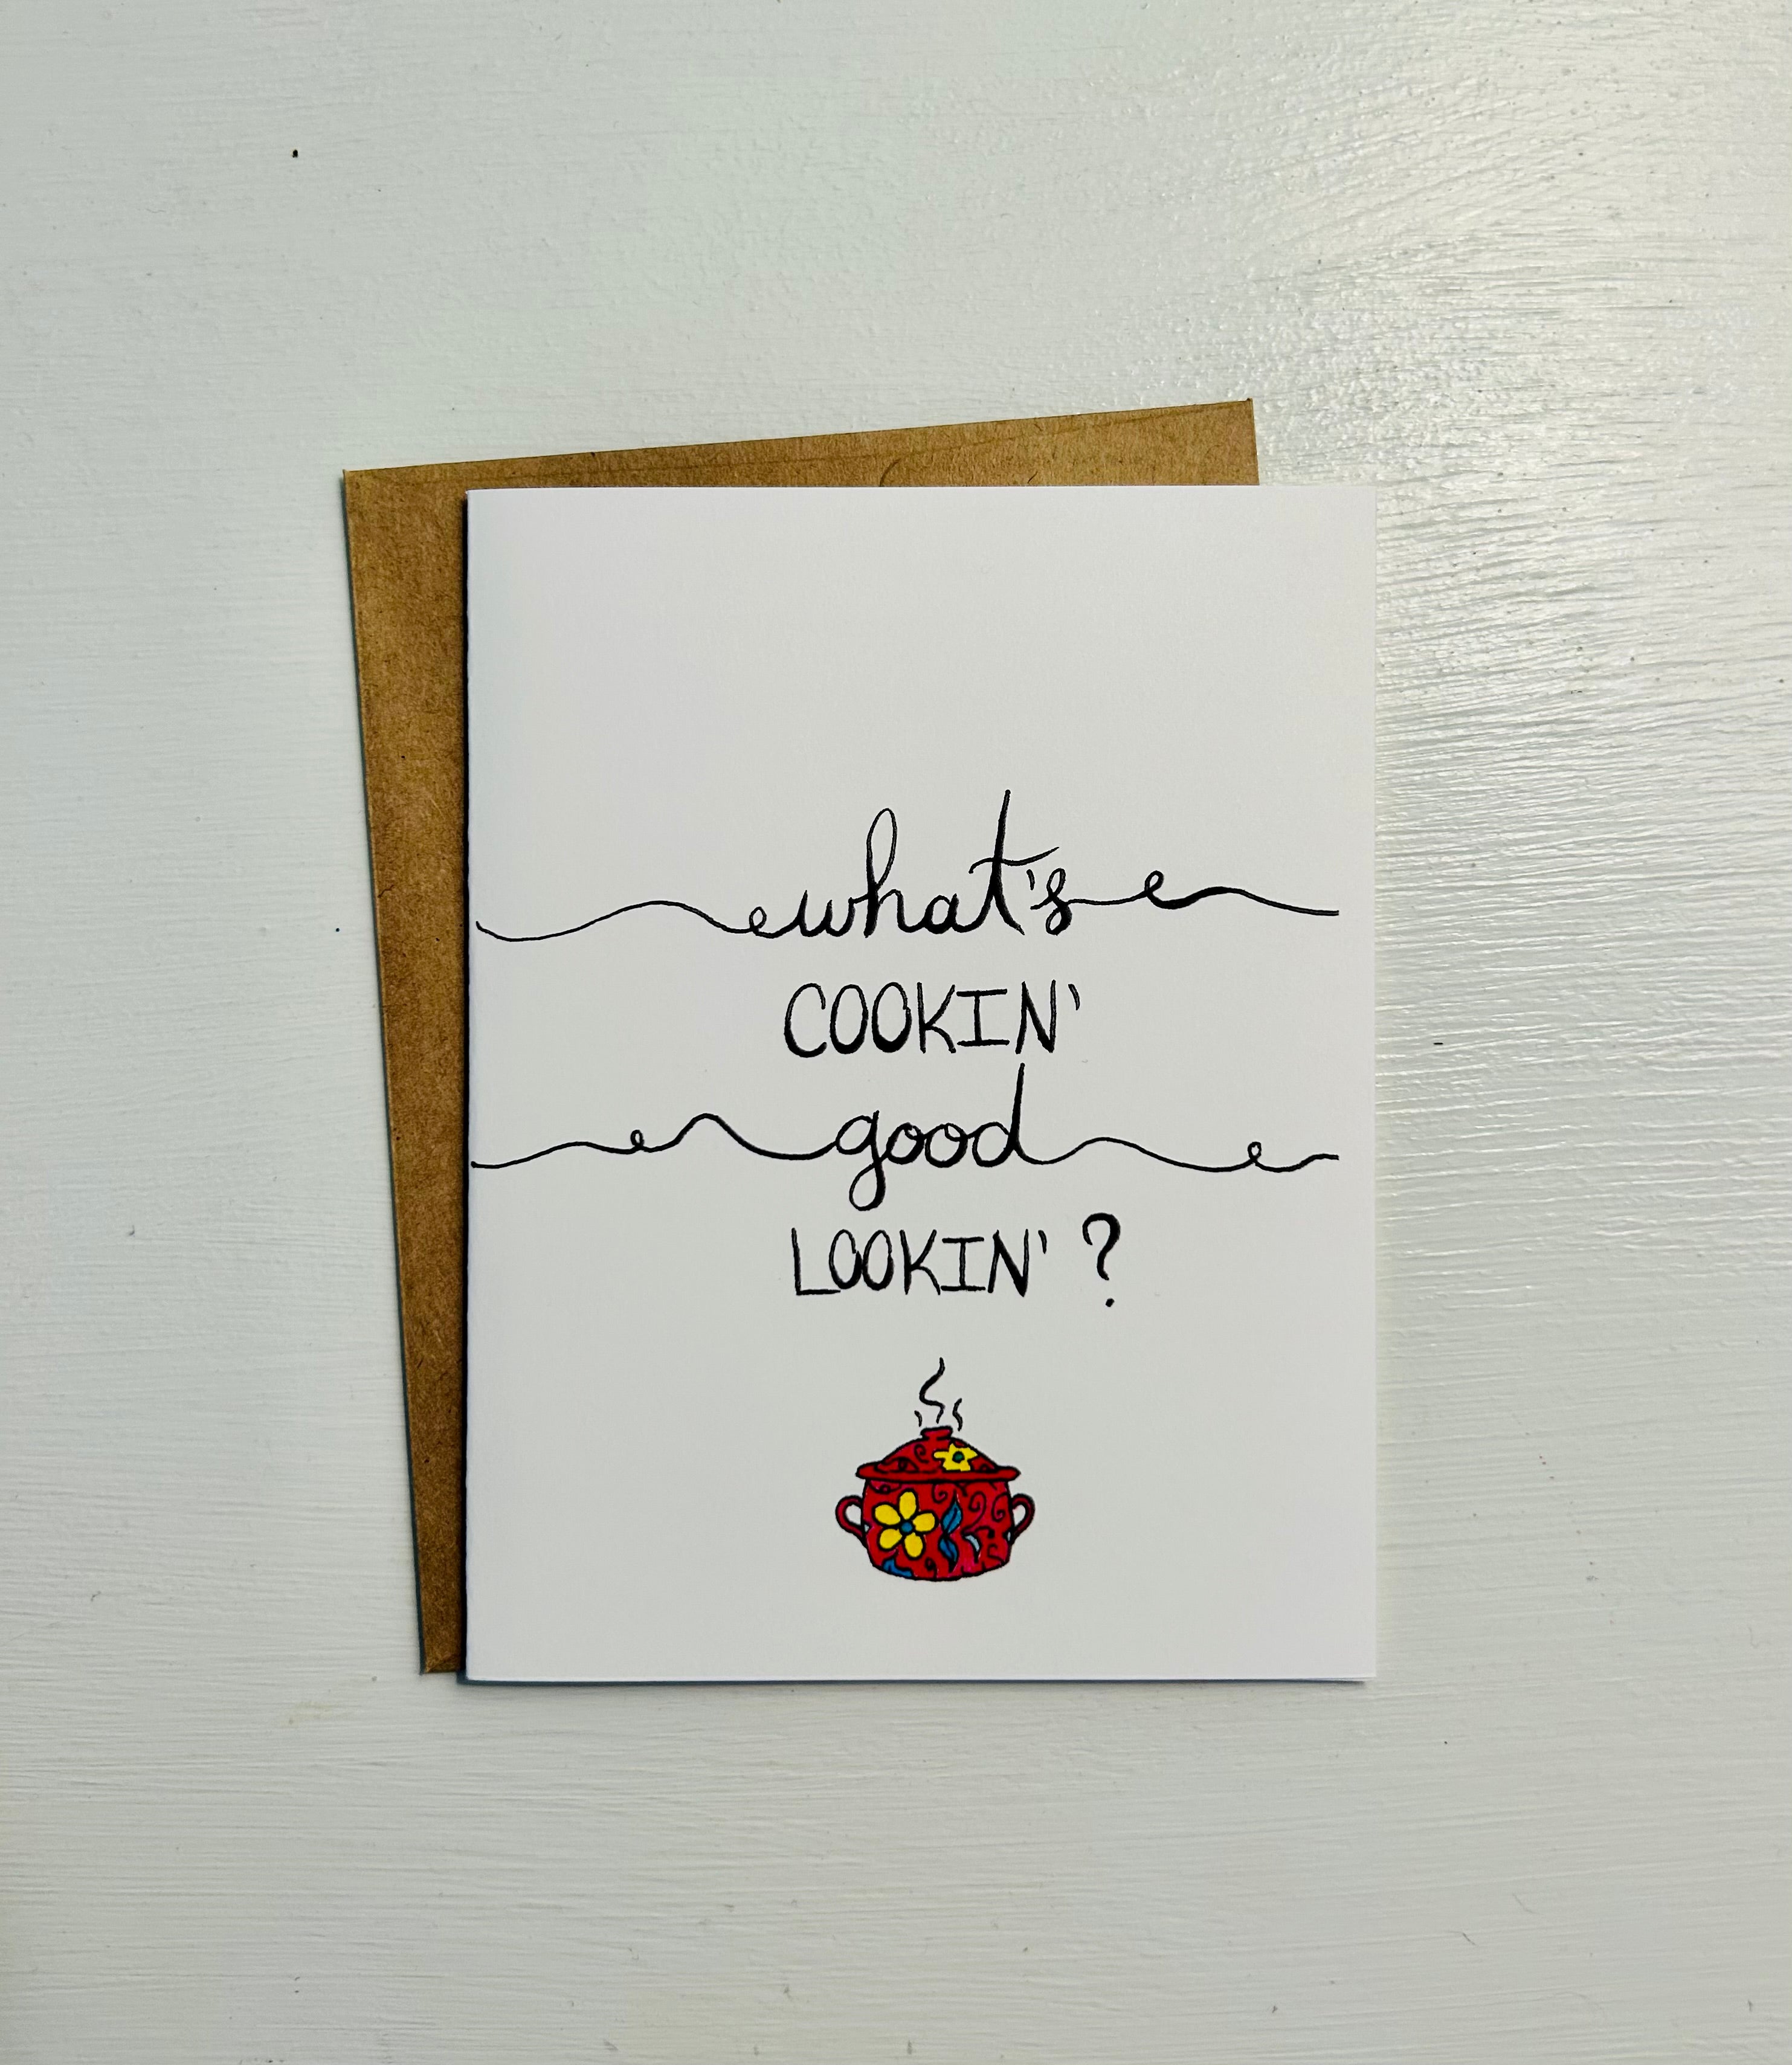 what's
COOKIN'
good
LOOKIN' ?